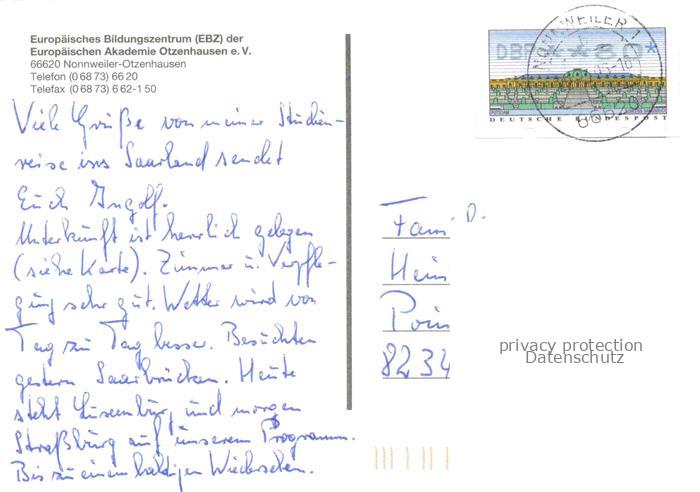 Europäisches Bildungszentrum (EBZ) der
Europäischen Akademie Otzenhausen e. V.
66620 Nonnweiler-Otzenhausen
Telefon (0 68 73) 66 20
Telefax (0 68 73) 6 62-1 50
Viele Grüße von meiner Studien-
reise ins Saarland sendet
Euch Ingolf.
Unterkunft ist herrlich gelegen
(siehe Karte). Zimmer u. Verpfle-
gung sehr gut. Wetter wird von
Tag zu Tag besser. Besuchten
gestern Saarbrücken. Heute
steht Luxemburg und morgen
Straßburg auf unserem Programm.
Bis zu einem baldigen Wiedersehen.
NONNWEILER 1
66620
DBP * * 80 *
DEUTSCHE BUNDESPOST
Fam. D.
Hein
Poin
8234
privacy protection
Datenschutz